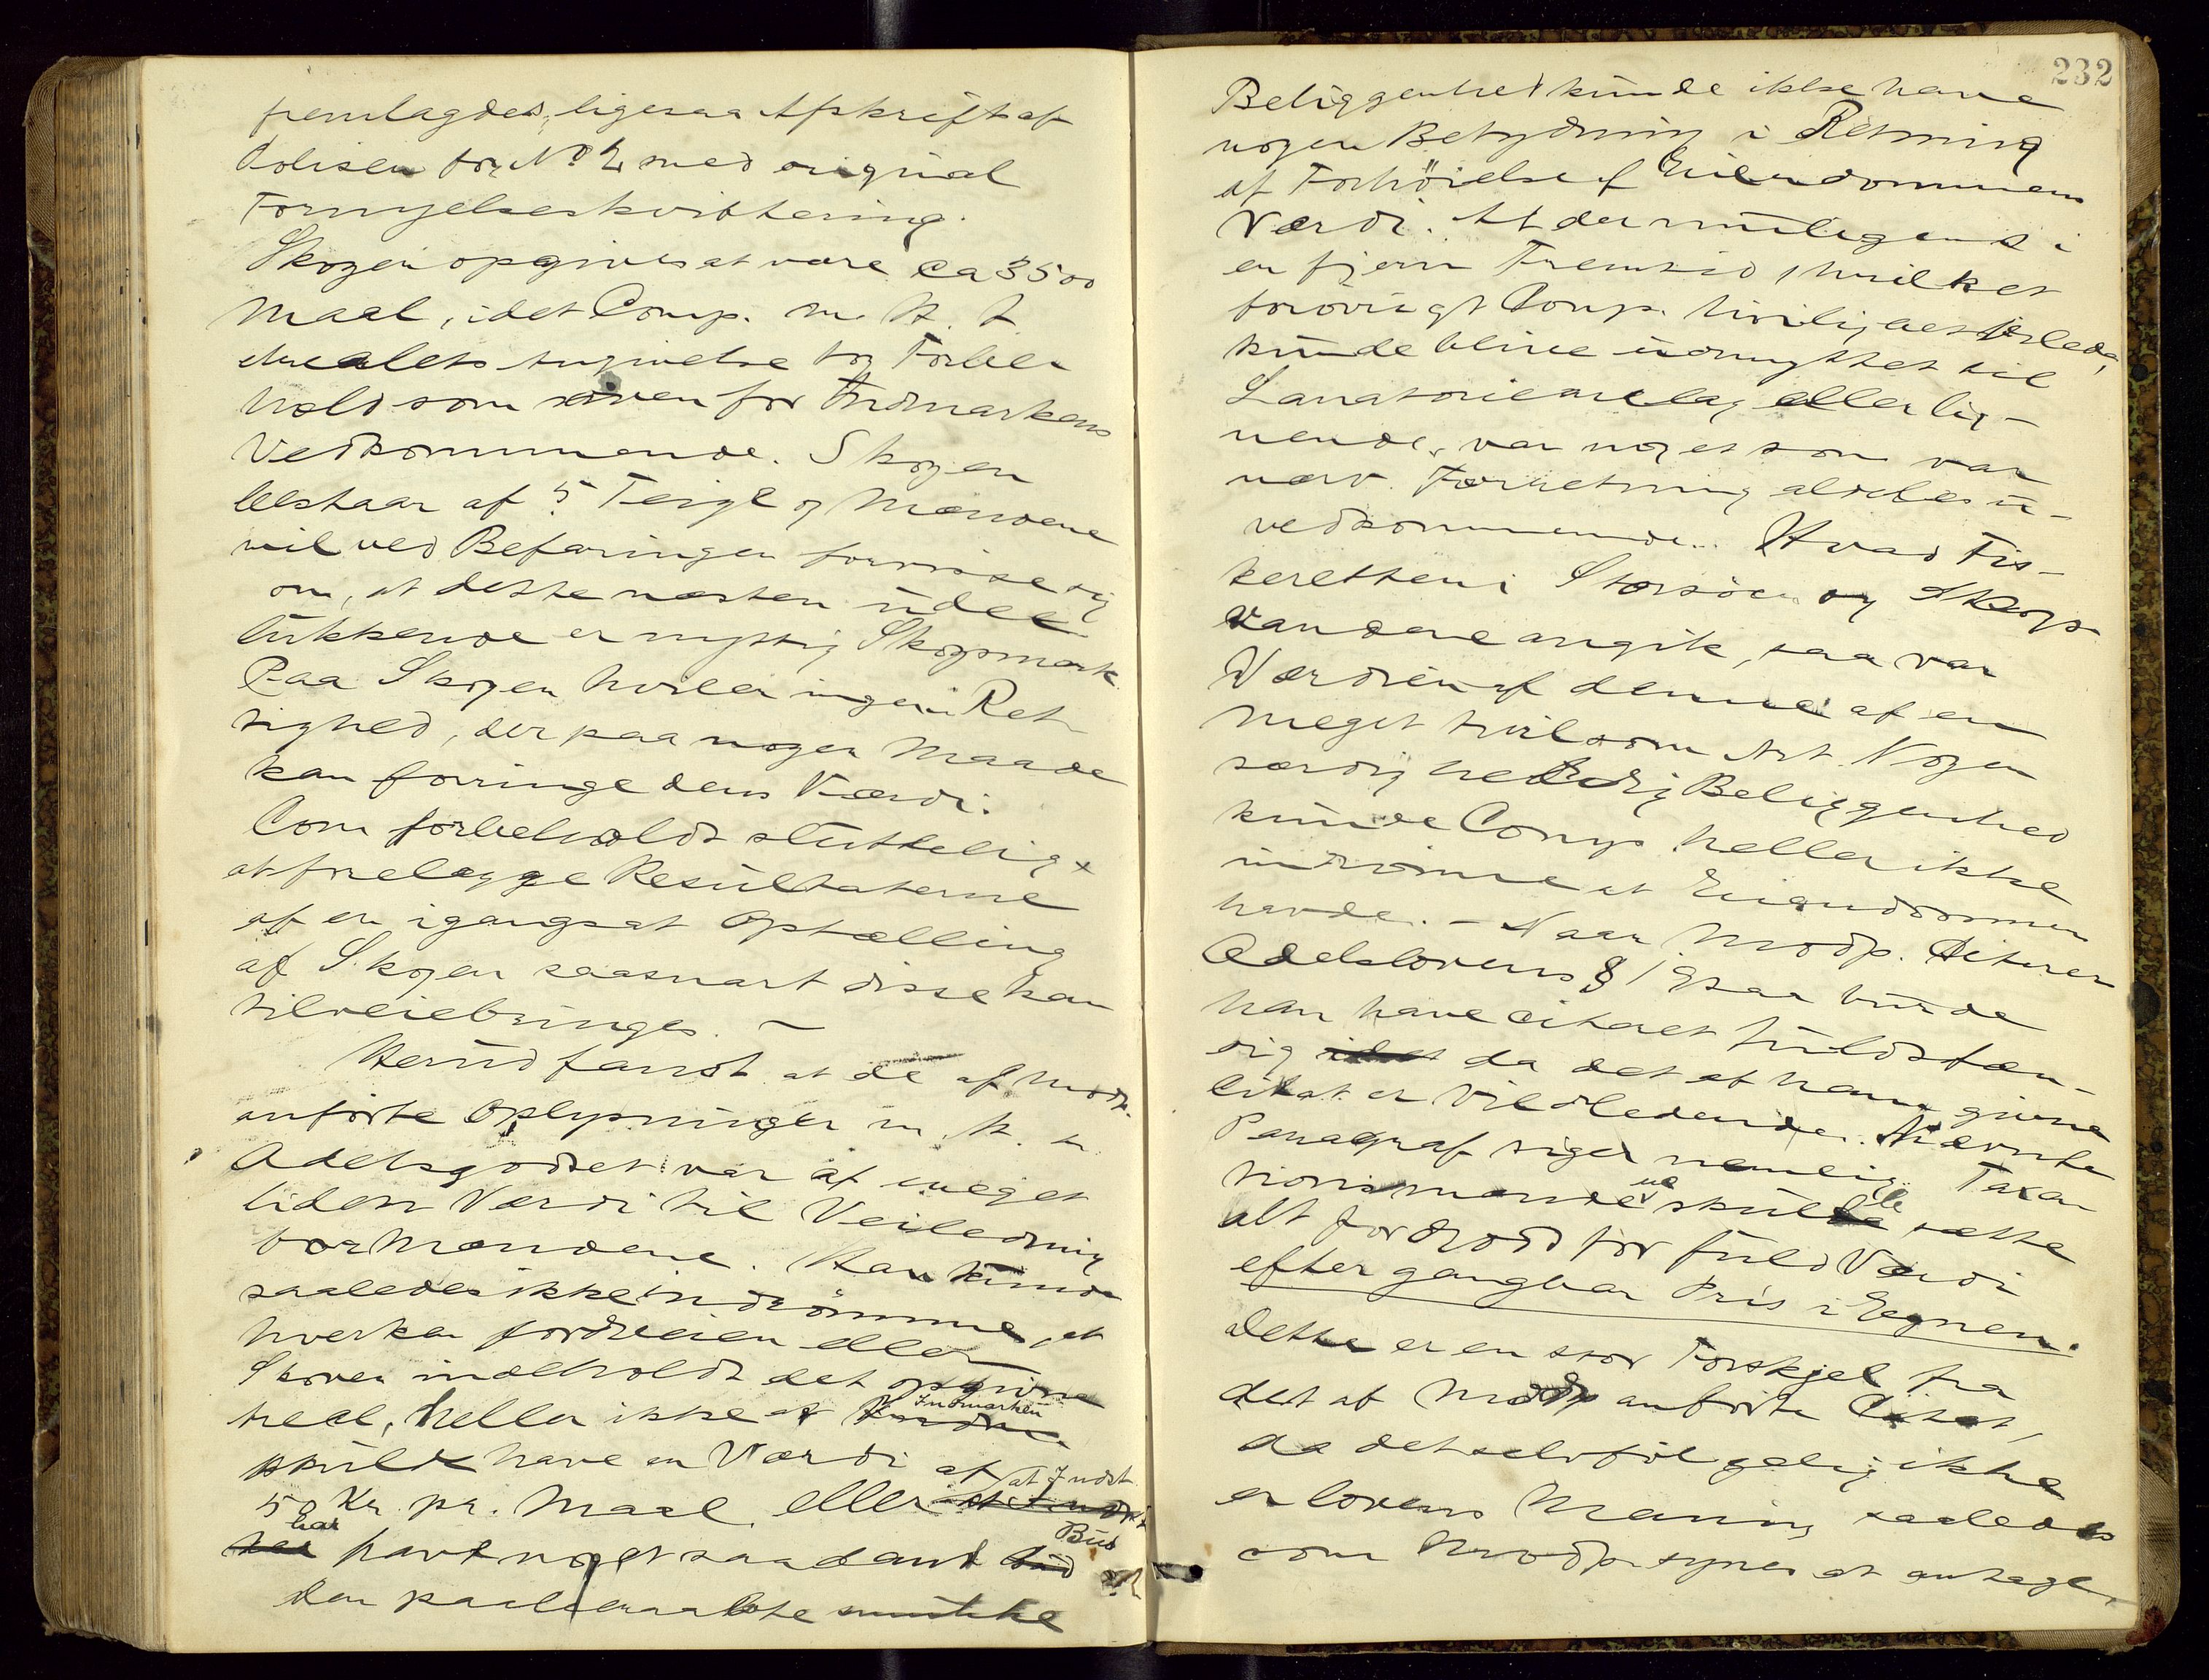 fremlagdes, ligesaa Afskrift af
Polisen for No 2 med original
Fornyelseskvittering.
Skogen opgives at være ca 3500
Maal, idet Comp. m. H. t
Maalets Angivelse tog Forbe-
hold som oven for Indmarkens
Vedkommende. Skogen
bestaar af 5 Teige og Mændene
vil ved Befaringen forvisse sig
om, at dette næsten ude
lukkende er nyttig Skogsmark
Paa Skogen hviler ingen Ret-
tighed, der paa nogen Maade
kan forringe dens Værdi.
Com forbeholdt sluttelig
at forelægge Resultaterne
af en igangsat Optælling
af Skogen saasnart disse kan
tilveiebringes. —
Herud fandt at de af Modp.
anførte Oplysninger m. H. t.
Odelsgodset var af meget
liden Værdi til Veiledning
for Mændene. Han kunde
saaledes ikke indrømme, at
hverken Jordveien eller
Skoven indeholdt det opgivne
Areal, heller ikke at Indmarken
skulde have en Værdi af
50 Kr. pr. Maal, eller at Indst
har havt noget saadant Bud
den paaberaabte smukke
232
Beliggenhed kunde ikke have
nogen Betydning i Retning
af Forhöielse af Eiendommens
Værdi. At der muligens i
en fjern Fremtid, hvilket
forövrigt Comp.
kunde blive udnyttet til
Sanatorieanlæg eller lig-
nende, var noget som var
nærv. Forretning aldeles u-
vedkommende. Hvad Fis-
keretten i Storsöen og Skogs-
vandene angik, saa var
Værdien af denne af en
meget tvilsom Art. Nogen
særdig heldig Beliggenhed
kunde Comp. heller ikke
indrömme at Eiendommen
havde. — Naar Modp. citerer
Odelslovens § 19 saa burde
han have citeret fuldstæn-
dig da det af ham givne
Citat er vildledende. Nævnte
Paragraf siger nemlig: Taxa-
tionsmændene skulle sætte
alt Jordgods for fuld Værdi
efter gangbar Pris i Egnen.
dette er en stor Forskjel fra
det af Modp anförte Citat,
da det selvfölgelig ikke
er lovens Mening saaledes
som Modp. synes at antage,